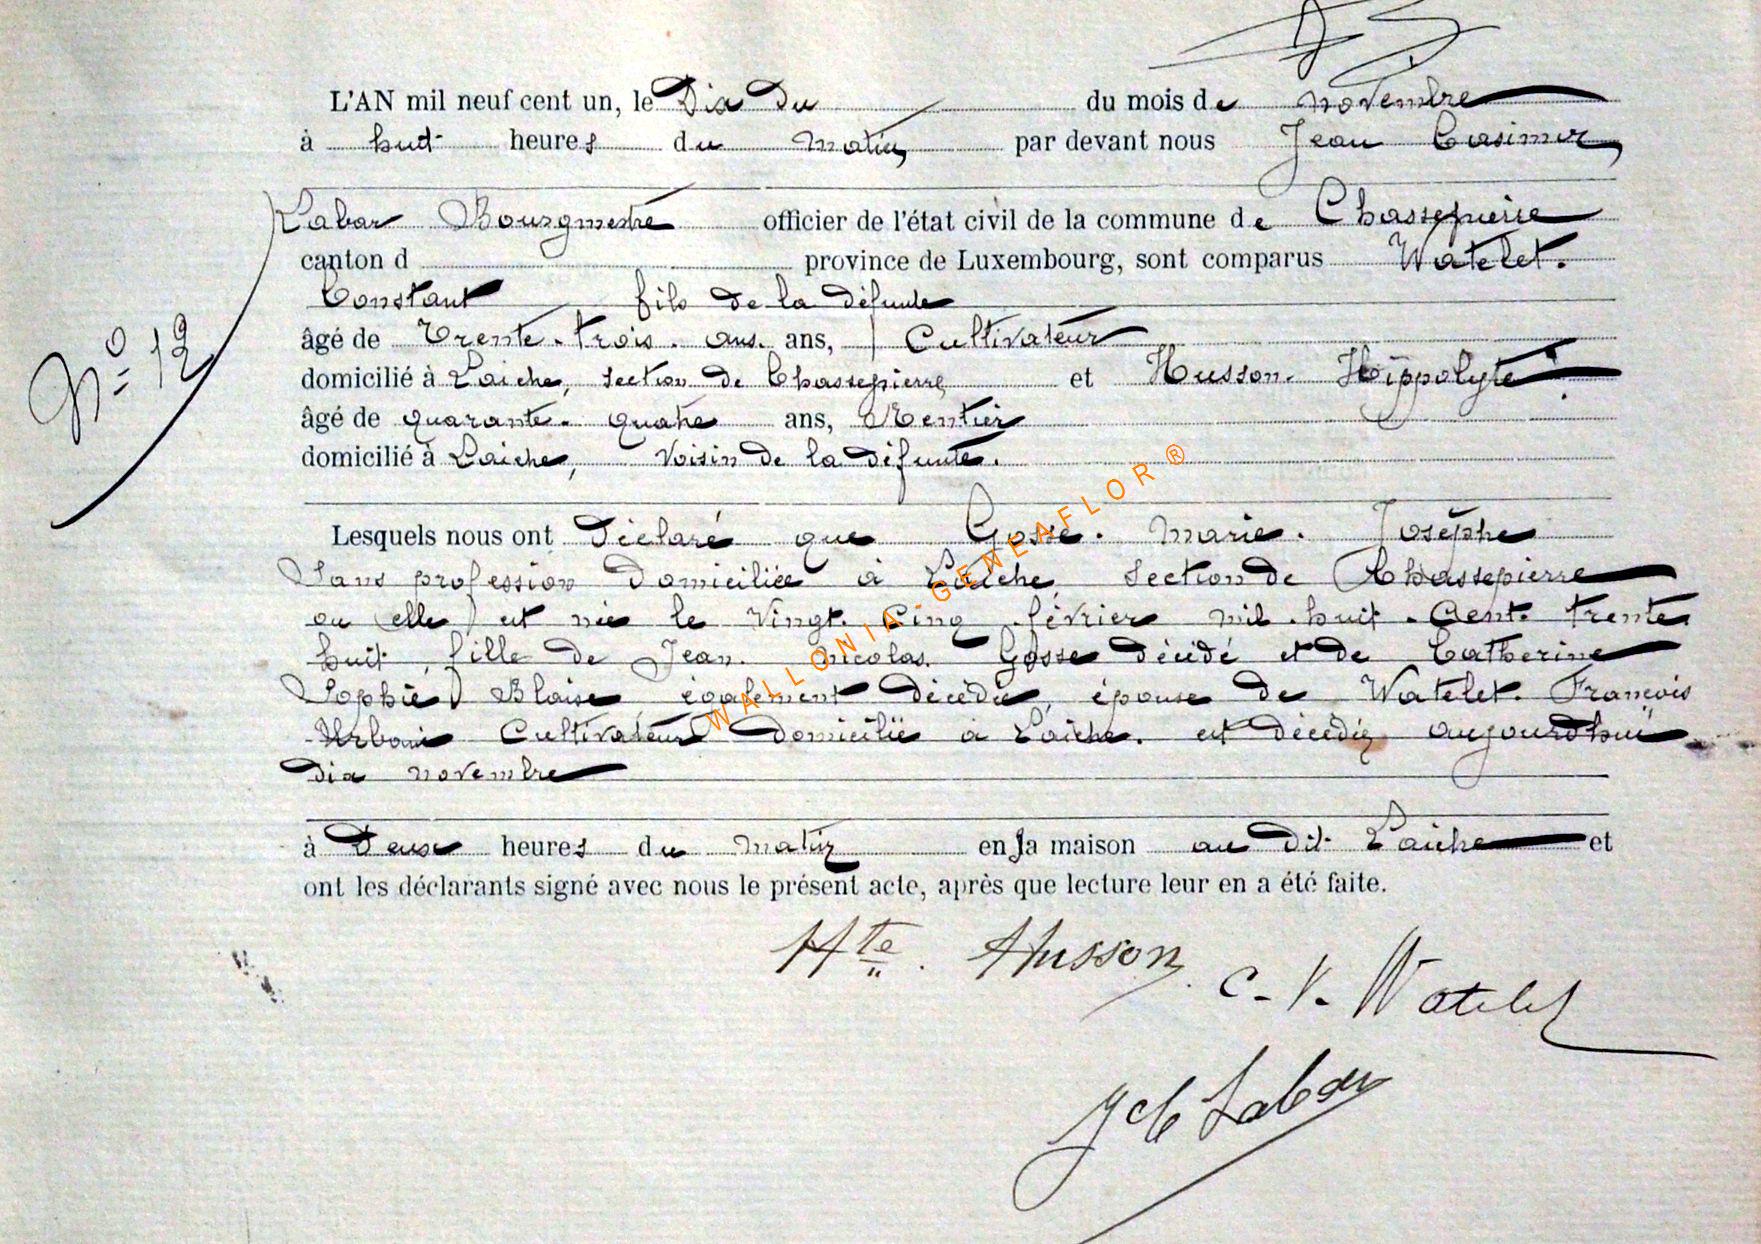 L'AN mil neuf cent un, le Dix du du mois de novembre
à huit heures du matin, par devant nous Jean Casimir
Labar Bourgmestre officier de l'état civil de la commune de Chassepierre
canton d province de Luxembourg, sont comparus Watelet.
Constant fils de la défunte
âgé de Trente-trois. ans. ans, Cultivateur
domicilié à Laiche, section de Chassepierre et Husson. Hippolyte.
âgé de quarante-quatre ans, Rentier
domicilié à Laiche, Voisin de la défunte.
N° 12
Lesquels nous ont Déclaré que Gosse. Marie. Josèphe
Sans profession Domiciliée à Laiche, section de Chassepierre
ou elle est née le Vingt. Cinq février mil. huit. Cent. trente
huit, fille de Jean. Nicolas. Gosse décédé et de Catherine
Sophie Blaise également décédée, épouse de Watelet. François
Urbain Cultivateur Domicilié à Laiche. est décédée aujourd'hui
dix novembre
à Deux heures du matin en la maison au dit Laiche et
ont les déclarants signé avec nous le présent acte, après que lecture leur en a été faite.
Hte. Husson
C. V. Watelet
JC Labar
WALLONIA-GENEAFLOR ®